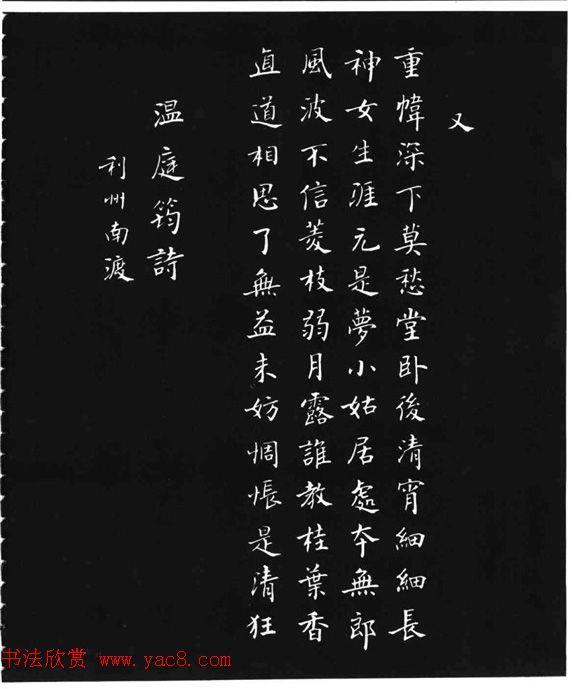 又
重幃深下莫愁堂卧後清宵細細長
神女生涯元是夢小姑居處本無郎
風波不信菱枝弱月露誰教桂葉香
直道相思了無益未妨惆悵是清狂
温庭筠詩
利州南渡
书法欣赏 www.yac8.com